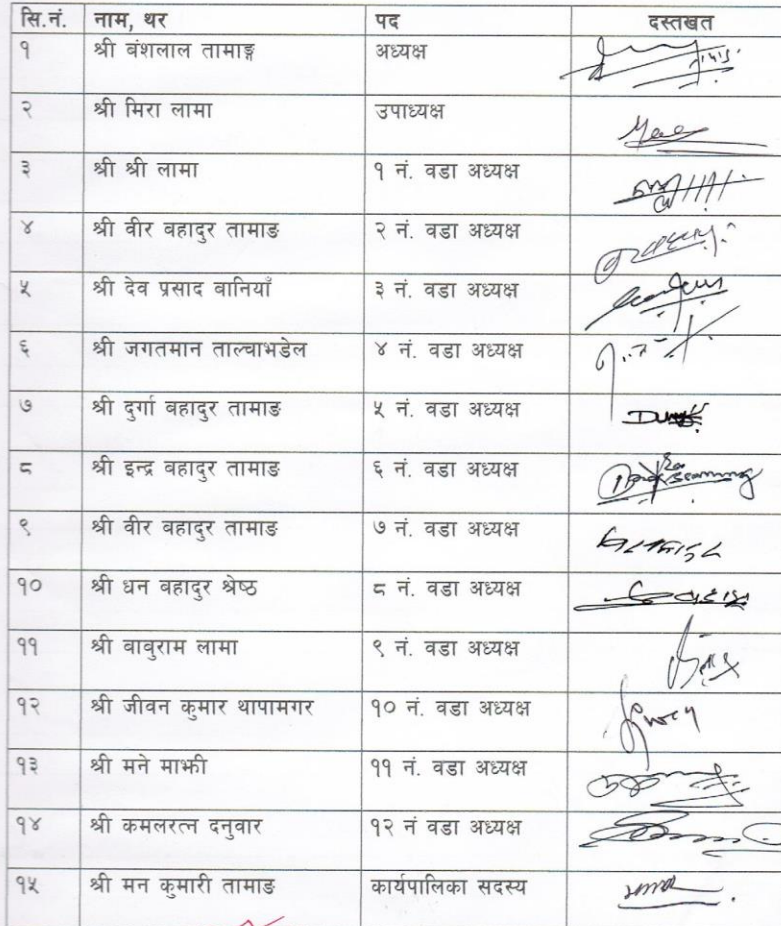 सि.नं. नाम, थर पद दस्तखत
१ श्री बंशलाल तामाङ्ग अध्यक्ष
२ श्री मिरा लामा उपाध्यक्ष
३ श्री श्री लामा १ नं. वडा अध्यक्ष
४ श्री वीर बहादुर तामाङ २ नं. वडा अध्यक्ष
५ श्री देव प्रसाद बानियाँ ३ नं. वडा अध्यक्ष
६ श्री जगतमान ताल्चाभडेल ४ नं. वडा अध्यक्ष
७ श्री दुर्गा बहादुर तामाङ ५ नं. वडा अध्यक्ष
८ श्री इन्द्र बहादुर तामाङ ६ नं. वडा अध्यक्ष
९ श्री वीर बहादुर तामाङ ७ नं. वडा अध्यक्ष
१० श्री धन बहादुर श्रेष्ठ ८ नं. वडा अध्यक्ष
११ श्री बाबुराम लामा ९ नं. वडा अध्यक्ष
१२ श्री जीवन कुमार थापामगर १० नं. वडा अध्यक्ष
१३ श्री मने माझी ११ नं. वडा अध्यक्ष
१४ श्री कमलरत्न दनुवार १२ नं वडा अध्यक्ष
१५ श्री मन कुमारी तामाङ कार्यपालिका सदस्य